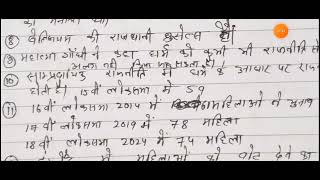 ⑧ बेल्जियम की राजधानी ब्रुसेल्स है।
⑨ महात्मा गाँधी ने कहा धर्म को कभी भी राजनीति से
अलग नहीं किया जा सकता है।
⑩ साम्प्रदायिक राजनीति में धर्म के आधार पर
होती है। 15वीं लोकसभा में 59
⑪ 16वीं लोकसभा 2014 में महिलाओं ने चुनाव
17वीं लोकसभा 2019 में 78 महिला
18वीं लोकसभा 2024 में 74 महिला
में महिलाओं को वोट देने का